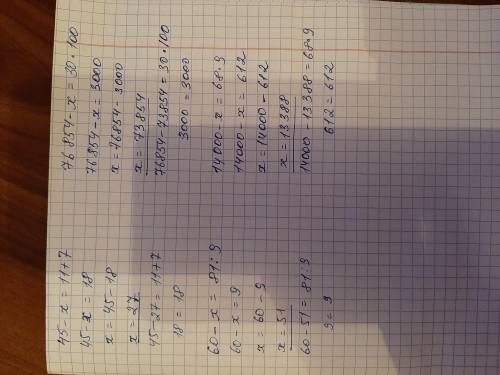 45-x = 11+7
45-x = 18
x = 45-18
x = 27
45-27 = 11+7
18 = 18
60-x = 81:9
60-x = 9
x = 60-9
x = 51
60-51 = 81:9
9 = 9
76854-x = 30·100
76854-x = 3000
x = 76854-3000
x = 73854
76854-73854 = 30·100
3000 = 3000
14000-x = 68·9
14000-x = 612
x = 14000-612
x = 13388
14000-13388 = 68·9
612 = 612